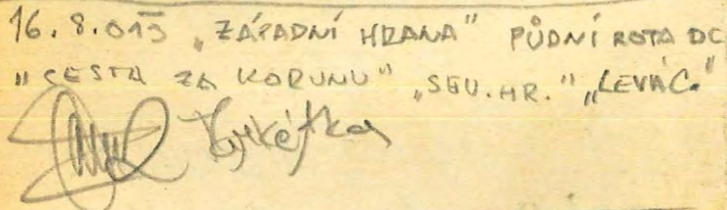 16.8.013 „ZÁPADNÍ HRANA" PŮDNÍ ROTA DC
„CESTA ZA KORUNU" „SEV.HR." „LEVÁC."